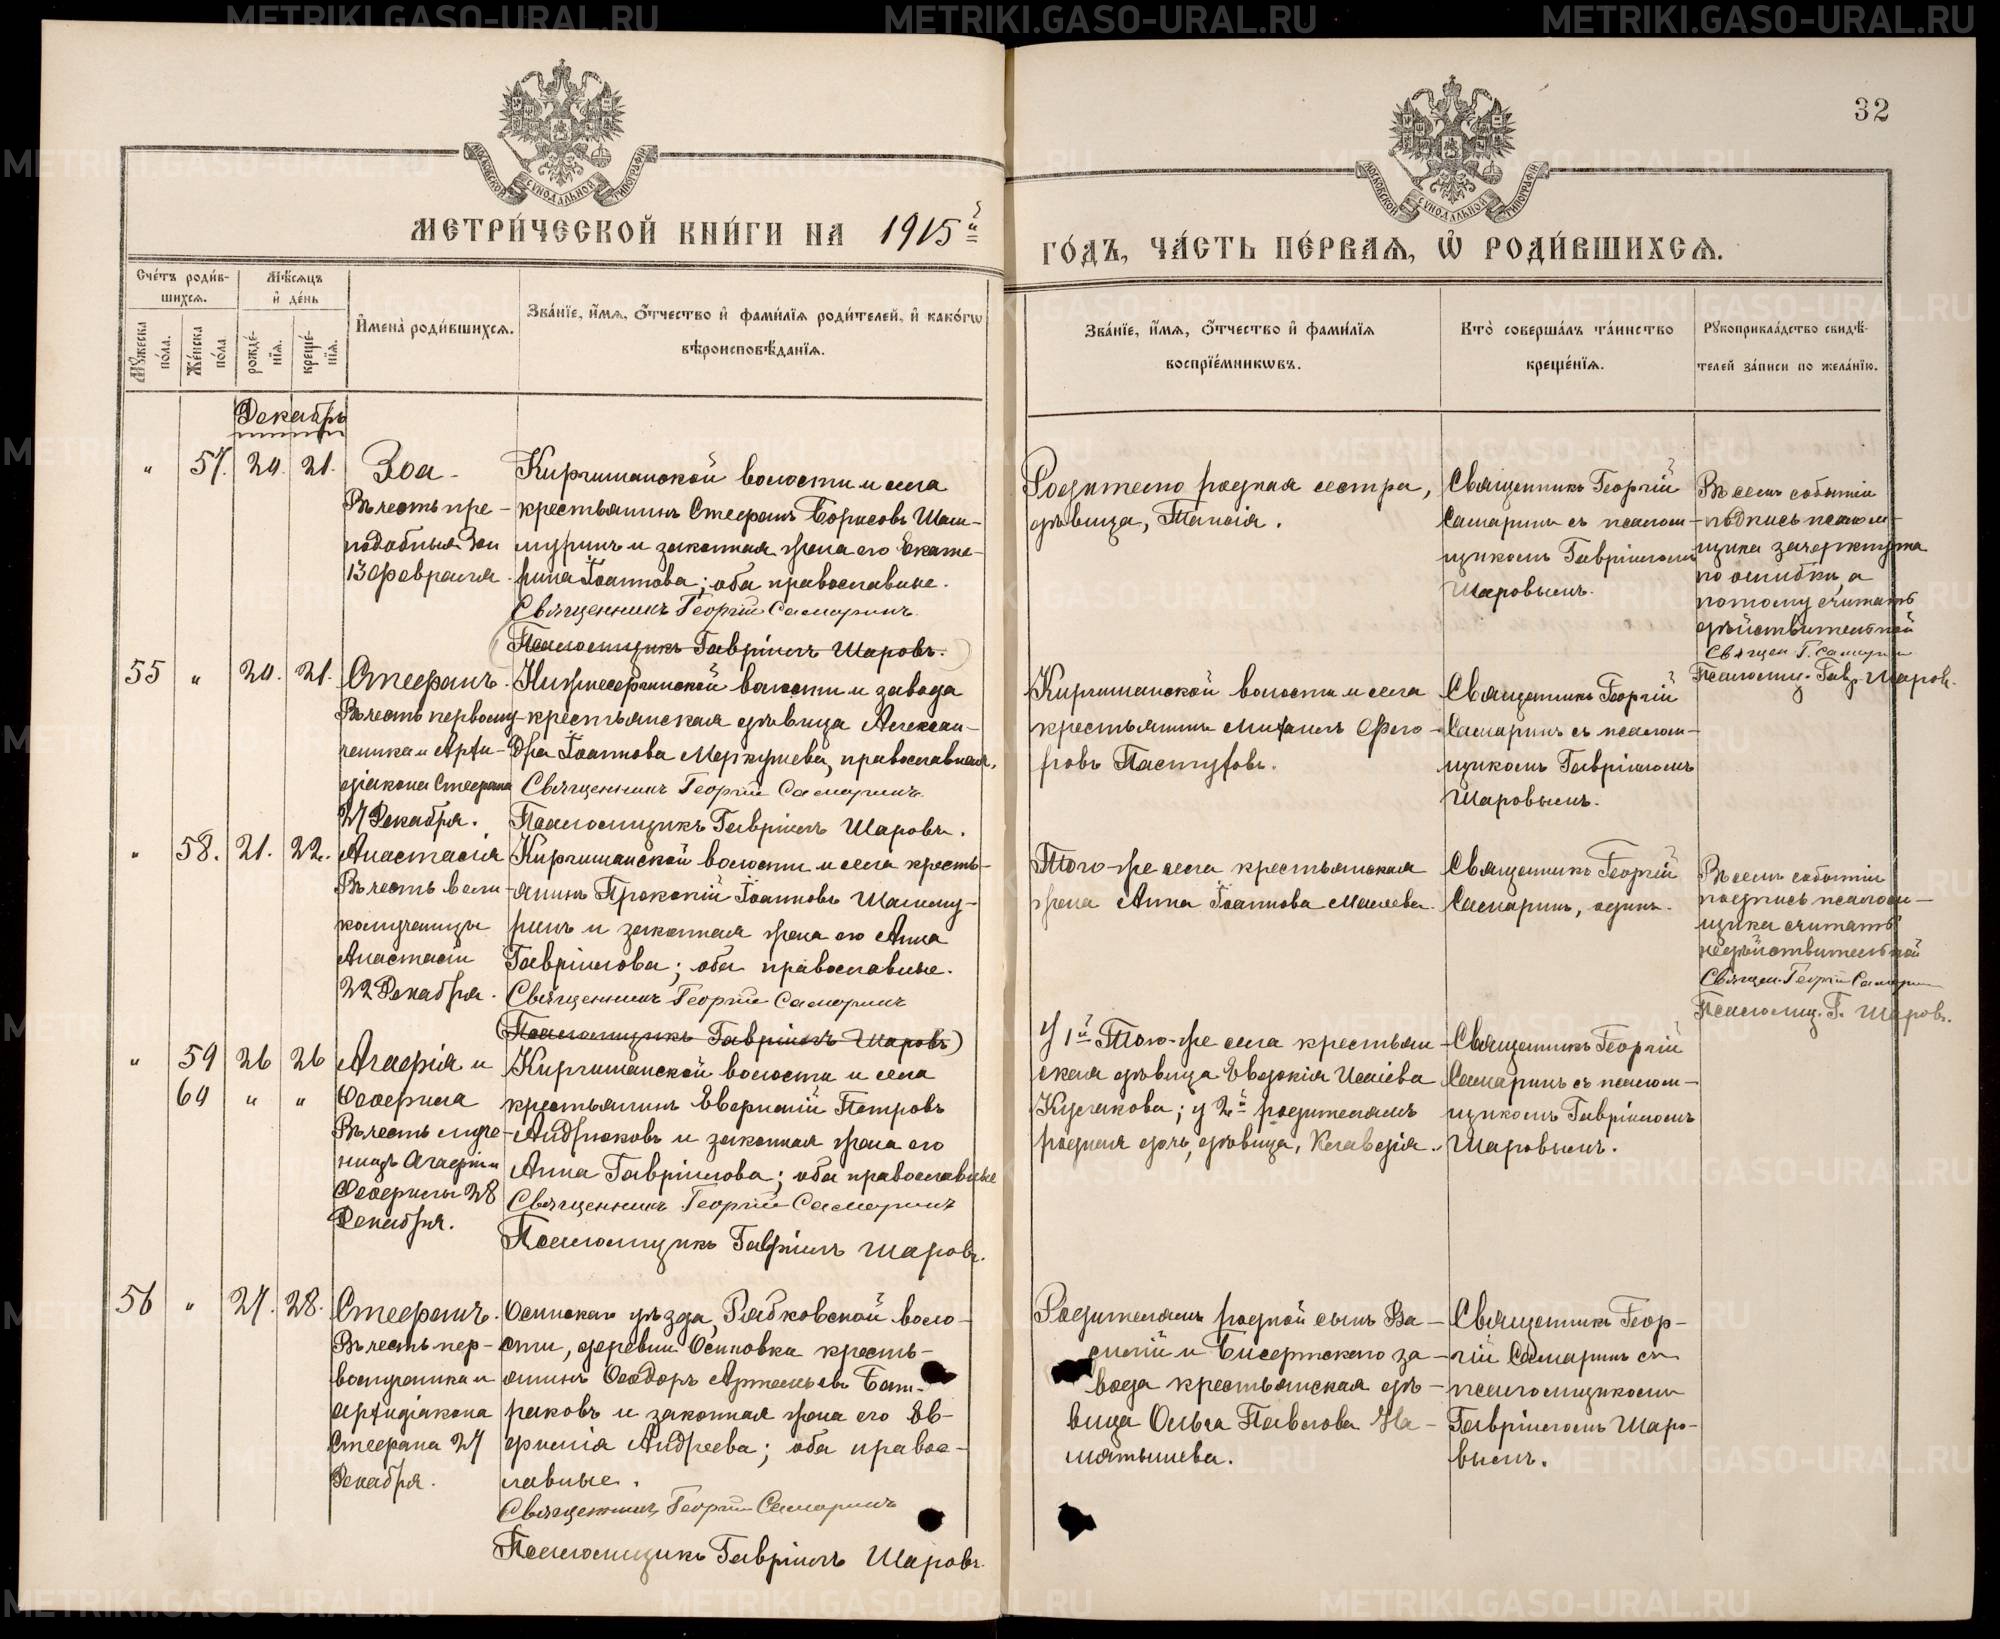 32
МОСКОВСКОЙ СѴНОДАЛЬНОЙ ТИПОГРАФІИ
МОСКОВСКОЙ СѴНОДАЛЬНОЙ ТИПОГРАФІИ
МЕТРИ́ЧЕСКОЙ КНИ́ГИ НА 1915й
ГО́ДЪ, ЧА́СТЬ ПЕ́РВАѦ, Ѿ РОДИ́ВШИХСѦ.
Сче́тъ роди́в-
шихсѧ.
Мѣ́сѧцъ
и҆ де́нь
Мꙋ́жеска по́ла.
Же́нска по́ла
рожде́-
нїѧ.
креще́-
нїѧ.
И҆мена̀ роди́вшихсѧ.
Зва́нїе, и҆́мѧ, ѻ҆́тчество и҆ фами́лїѧ роди́телей, и҆ како́гѡ
вѣроисповѣ́данїѧ.
Зва́нїе, и҆́мѧ, ѻ҆́тчество и҆ фами́лїѧ
воспрїе́мникѡвъ.
Кто̀ соверша́лъ та́инство
креще́нїѧ.
Рꙋкоприкла́дство свидѣ́-
телей за́писи по жела́нїю.
Декабрь
" 57. 20. 21. Зоа
Въ честь пре-
подобныя Зои
13 Февраля.
Киргишанской волости и села
крестьянинъ Стефанъ Борисовъ Шаш-
муринъ и законная жена его Екате-
рина Іоаннова; оба православные.
Священникъ Георгій Самаринъ
(Псаломщикъ Гавріилъ Шаровъ.)
Родителю родная сестра,
дѣвица, Таисія.
Священникъ Георгій
Самаринъ съ псалом-
щикомъ Гавріиломъ
Шаровымъ.
Въ семъ событіи
подпись псалом-
щика зачеркнута
по ошибкѣ, а
потому считать
дѣйствительной
Священ. Г. Самаринъ
Псаломщ. Гавр. Шаровъ.
55 " 20. 21. Стефанъ.
Въ честь первому-
ченика и Архи-
діакона Стефана
27 Декабря.
Нижнесергинской волости и завода
крестьянская дѣвица Алексан-
дра Іоаннова Меркушева, православная.
Священникъ Георгій Самаринъ
Псаломщикъ Гавріилъ Шаровъ.
Киргишанской волости и села
крестьянинъ Михаилъ Его-
ровъ Пастуховъ.
Священникъ Георгій
Самаринъ съ псалом-
щикомъ Гавріиломъ
Шаровымъ.
" 58. 21. 22. Анастасія
Въ честь вели-
комученицы
Анастасіи
22 Декабря.
Киргишанской волости и села кресть-
янинъ Прокопій Іоанновъ Шашму-
ринъ и законная жена его Анна
Гавріилова; оба православные.
Священникъ Георгій Самаринъ
(Псаломщикъ Гавріилъ Шаровъ)
Того-же села крестьянская
жена Анна Іоаннова
Священникъ Георгій
Самаринъ, одинъ.
Въ семъ событіи
подпись псалом-
щика считать
недѣйствительной
Священ. Георгій Самаринъ
Псаломщ. Г. Шаровъ.
" 59 26 26 Агафія и
60 " " Ѳеофила
Въ честь муче-
ницъ Агафіи и
Ѳеофилы 28
Декабря.
Киргишанской волости и села
крестьянинъ Евгеній Петровъ
Андрюковъ и законная жена его
Анна Гавріилова; оба православные
Священникъ Георгій Самаринъ
Псаломщикъ Гавріилъ Шаровъ.
У 1й Того-же села крестьян-
ская дѣвица Евдокія Исаіева
Кускова; у 2й родителямъ
родная дочь, дѣвица, Клавдія.
Священникъ Георгій
Самаринъ съ псалом-
щикомъ Гавріиломъ
Шаровымъ.
56 " 27. 28. Стефанъ.
Въ честь пер-
вомученика и
архидіакона
Стефана 27
Декабря.
Осинскаго уѣзда, Рябковской воло-
сти, деревни Осиновки кресть-
янинъ Ѳеодоръ Артемьевъ
раковъ и законная жена его Ев-
фимія Андреева; оба правос-
лавные.
Священникъ Георгій Самаринъ
Псаломщикъ Гавріилъ Шаровъ.
Родителямъ родной сынъ Ва-
силій и Бисертскаго за-
вода крестьянская дѣ-
вица Ольга Павлова
Священникъ Геор-
гій Самаринъ съ
псаломщикомъ
Гавріиломъ Шаро-
вымъ.
METRIKI.GASO-URAL.RU